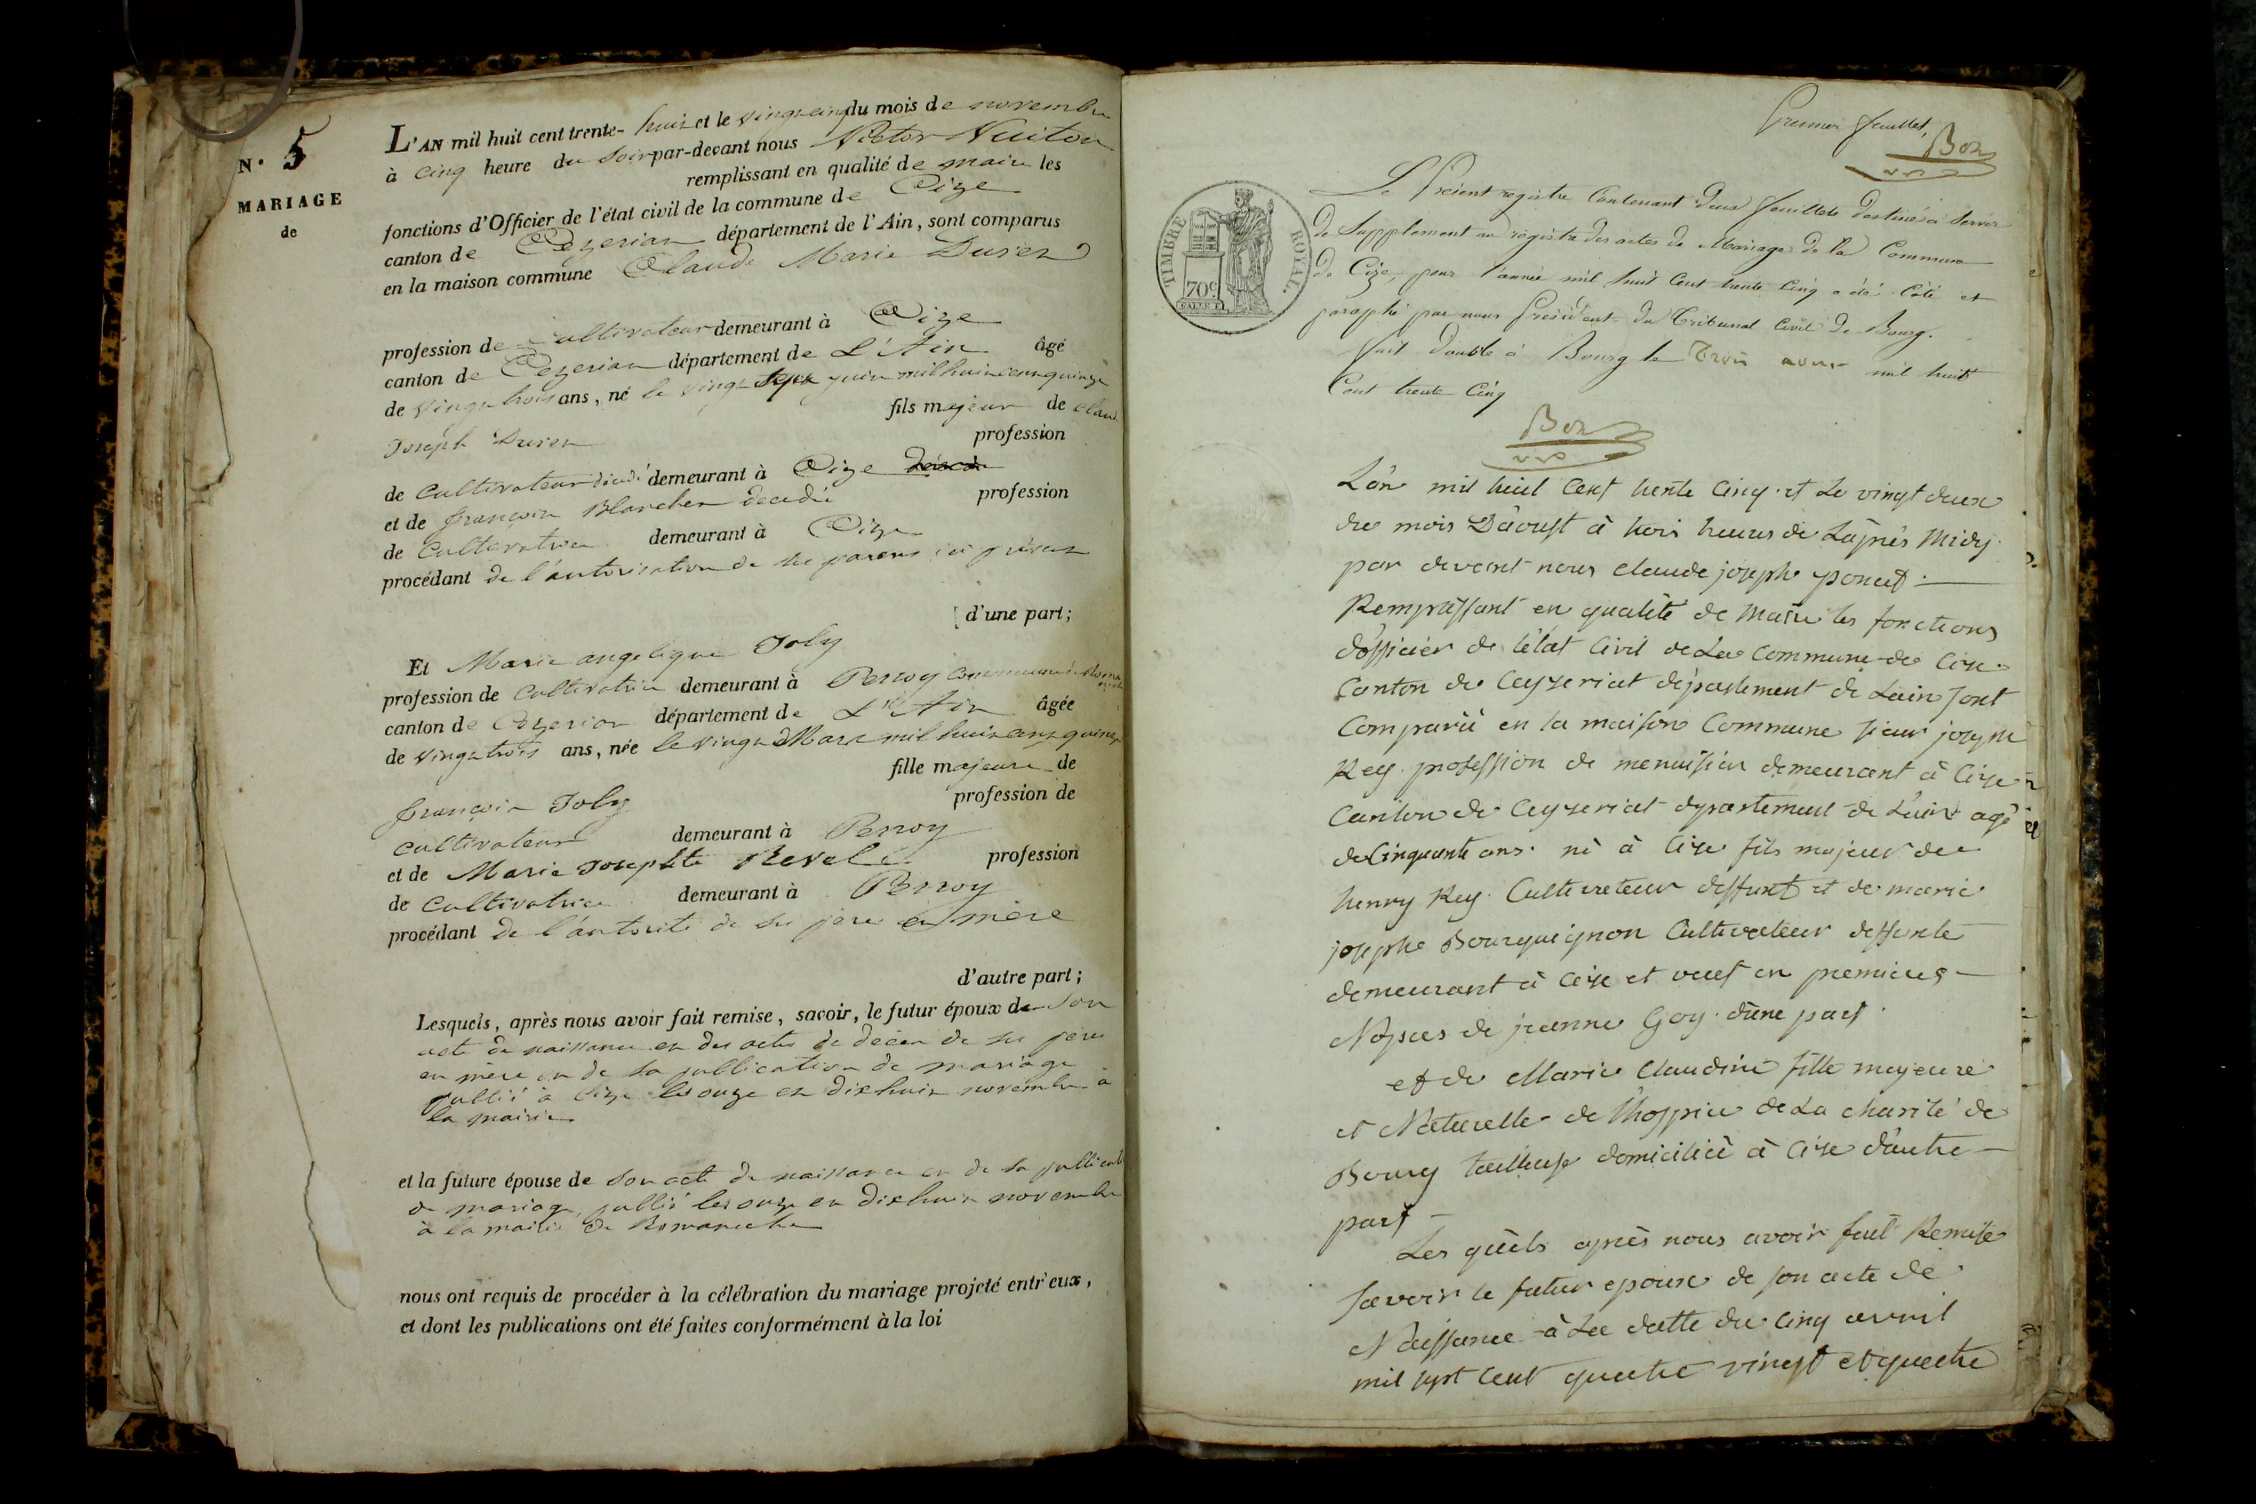 N.° 5
MARIAGE
de
L'AN mil huit cent trente-huit et le vingt cinq du mois de novembre
à cinq heure du soir par-devant nous Victor Nuiton
remplissant en qualité de maire les
fonctions d'Officier de l'état civil de la commune de Cize
canton de Cezeriar département de l'Ain, sont comparus
en la maison commune Claude Marie Duren
profession de cultivateur demeurant à Cize
canton de Cezeriar département de L'Ain âgé
de vingt trois ans, né le vingt sept juin mil huit cent quinze
fils majeur de Claude
Joseph Duren
profession
de cultivateur décidé demeurant à Cize
et de françoise Blanchen decedée profession
de cultivatrice demeurant à Cize
procédant de l'autorisation de ses parens ici présens
d'une part;
Et Marie angelique Joly
profession de cultivatrice demeurant à Perroy commune de
canton de Cezeriar département de L'Ain âgée
de vingt trois ans, née le vingt Mars mil huit cent quinze
fille majeure de
françois Joly profession de
cultivateur demeurant à Perroy
et de Marie Josephte Revel profession
de cultivatrice demeurant à Perroy
procédant de l'autorité de ses père et mère
d'autre part;
Lesquels, après nous avoir fait remise, savoir, le futur époux de son
acte de naissance et des actes de décès de ses père
et mère et de sa publication de mariage
publié à Cize les onze et dixhuit novembre à
la mairie
et la future épouse de son acte de naissance et de sa publication
de mariage publié les onze et dixhuit novembre
à la mairie de Romaneche
nous ont requis de procéder à la célébration du mariage projeté entr'eux,
et dont les publications ont été faites conformément à la loi
Premier feuillet,
Bon
TIMBRE ROYAL.
70c
Le Présent registre Contenant deux feuillets destinés à Servir
de Supplement au registre des actes de Mariage de la Commune
de Cize, pour l'année mil huit Cent trente Cinq a été Côté et
paraphé par nous Président du Tribunal Civil de Bourg.
Fait double à Bourg le Trois aout mil huit
Cent trente Cinq
Bon
L'an mil huit cent trente cinq et Le vingt deux
du mois Daoust à trois heures de Laprès Midy
par devant nous claude joseph poncet
Remplissant en qualité de Maire les fonctions
d'officier de l'état Civil de La Commune de Cize
Canton de Ceyzeriat département de Lain sont
Comparu en la maison Commune sieur joseph
Rey profession de menuisier demeurant à Cize
Canton de Ceyzeriat departement de L'ain agé
de Cinquante ans né à Cize fils majeur de
henry Rey Cultivateur deffunt et de marie
josephe Bourguignon Cultivateur deffunte
demeurant à Cize et veuf en premieres
Nopces de jeanne Goy d'une part
et de Marie Claudine fille majeure
et Naturelle de l'hospice de La charité de
Bourg tailleuse domiciliée à Cize d'autre
part
Les quels après nous avoir fait Remise
savoir le futur epoux de son acte de
Naissance à La datte du cinq avril
mil sept cent quatre vingt et quatre